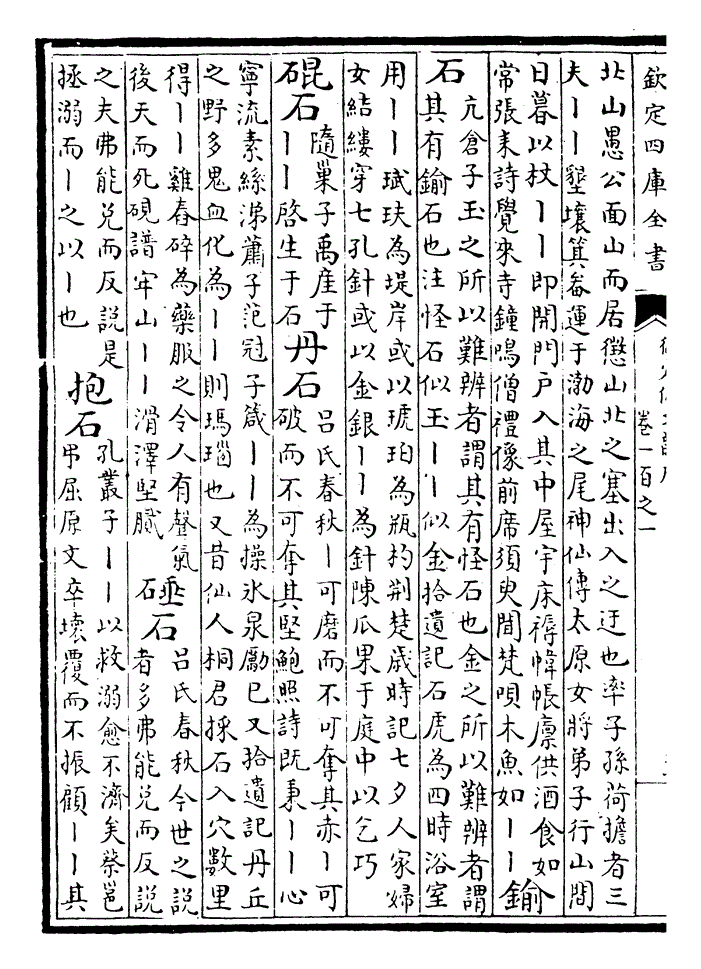 欽定四庫全書
卷一百之一
北山愚公面山而居懲山北之塞出入之迂也率子孫荷擔者三
夫丨丨墾壤箕畚運于渤海之尾神仙傳太原女將弟子行山間
日暮以杖丨丨即開門戶入其中屋宇床褥幃帳廩供酒食如
常張耒詩覺來寺鐘鳴僧禮像前席須臾聞梵唄木魚如丨丨
鍮
石
亢倉子玉之所以難辨者謂其有怪石也金之所以難辨者謂
其有鍮石也注怪石似玉丨丨似金拾遺記石虎為四時浴室
用丨丨珷玞為堤岸或以琥珀為瓶杓荆楚歲時記七夕人家婦
女結縷穿七孔針或以金銀丨丨為針陳瓜果于庭中以乞巧
硍石
隨巢子禹產于
丨丨啓生于石
丹石
吕氏春秋丨可磨而不可奪其赤丨可
破而不可奪其堅鮑照詩既秉丨丨心
寧流素絲涕蕭子范冠子箴丨丨為操氷泉勵己又拾遺記丹丘
之野多鬼血化為丨丨則瑪瑙也又昔仙人桐君採石入穴數里
得丨丨雞舂碎為藥服之令人有聲氣
後天而死硯譜牢山丨丨滑澤堅膩
硾石
吕氏春秋今世之説
者多弗能兌而反説
之夫弗能兌而反説是
拯溺而丨之以丨也
抱石
孔叢子丨丨以救溺愈不濟矣蔡邕
弔屈原文卒壞覆而不振顧丨丨其